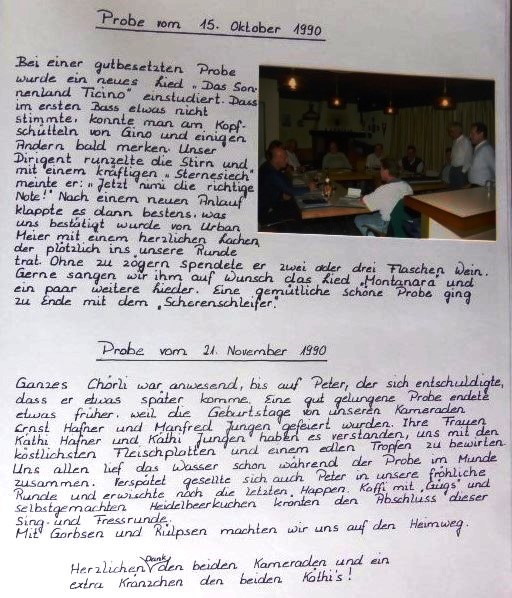 Probe vom 15. Oktober 1990
Bei einer gutbesetzten Probe
wurde ein neues Lied „Das Son-
nenland Ticino" einstudiert. Dass
im ersten Bass etwas nicht
stimmte, konnte man am Kopf-
schütteln von Gino und einigen
Andern bald merken. Unser
Dirigent runzelte die Stirn und
mit einem kräftigen „Sternesiech"
meinte er: „Jetzt nimi die richtige
Note!" Nach einem neuen Anlauf
klappte es dann bestens, was
uns bestätigt wurde von Urban
Meier mit einem herzlichen Lachen,
der plötzlich ins unsere Runde
trat. Ohne zu zögern spendete er zwei oder drei Flaschen Wein.
Gerne sangen wir ihm auf Wunsch das Lied „Montanara" und
ein paar weitere Lieder. Eine gemütliche schöne Probe ging
zu Ende mit dem „Scherenschleifer."
Probe vom 21. November 1990
Ganzes Chörli war anwesend, bis auf Peter, der sich entschuldigte,
dass er etwas später komme. Eine gut gelungene Probe endete
etwas früher, weil die Geburtstage von unseren Kameraden
Ernst Hafner und Manfred Jungen gefeiert wurden. Ihre Frauen
Käthi Hafner und Käthi Jungen haben es verstanden, uns mit den
köstlichsten Fleischplatten und einem edlen Tropfen zu bewirten.
Uns allen lief das Wasser schon während der Probe im Munde
zusammen. Verspätet gesellte sich auch Peter in unsere fröhliche
Runde und erwischte noch die letzten Happen. Kaffi mit „Gügs" und
selbstgemachten Heidelbeerkuchen krönten den Abschluss dieser
Sing- und Fressrunde.
Mit Gorbsen und Rülpsen machten wir uns auf den Heimweg.
Herzlichen Dank den beiden Kameraden und ein
extra Kränzchen den beiden Käthi's!